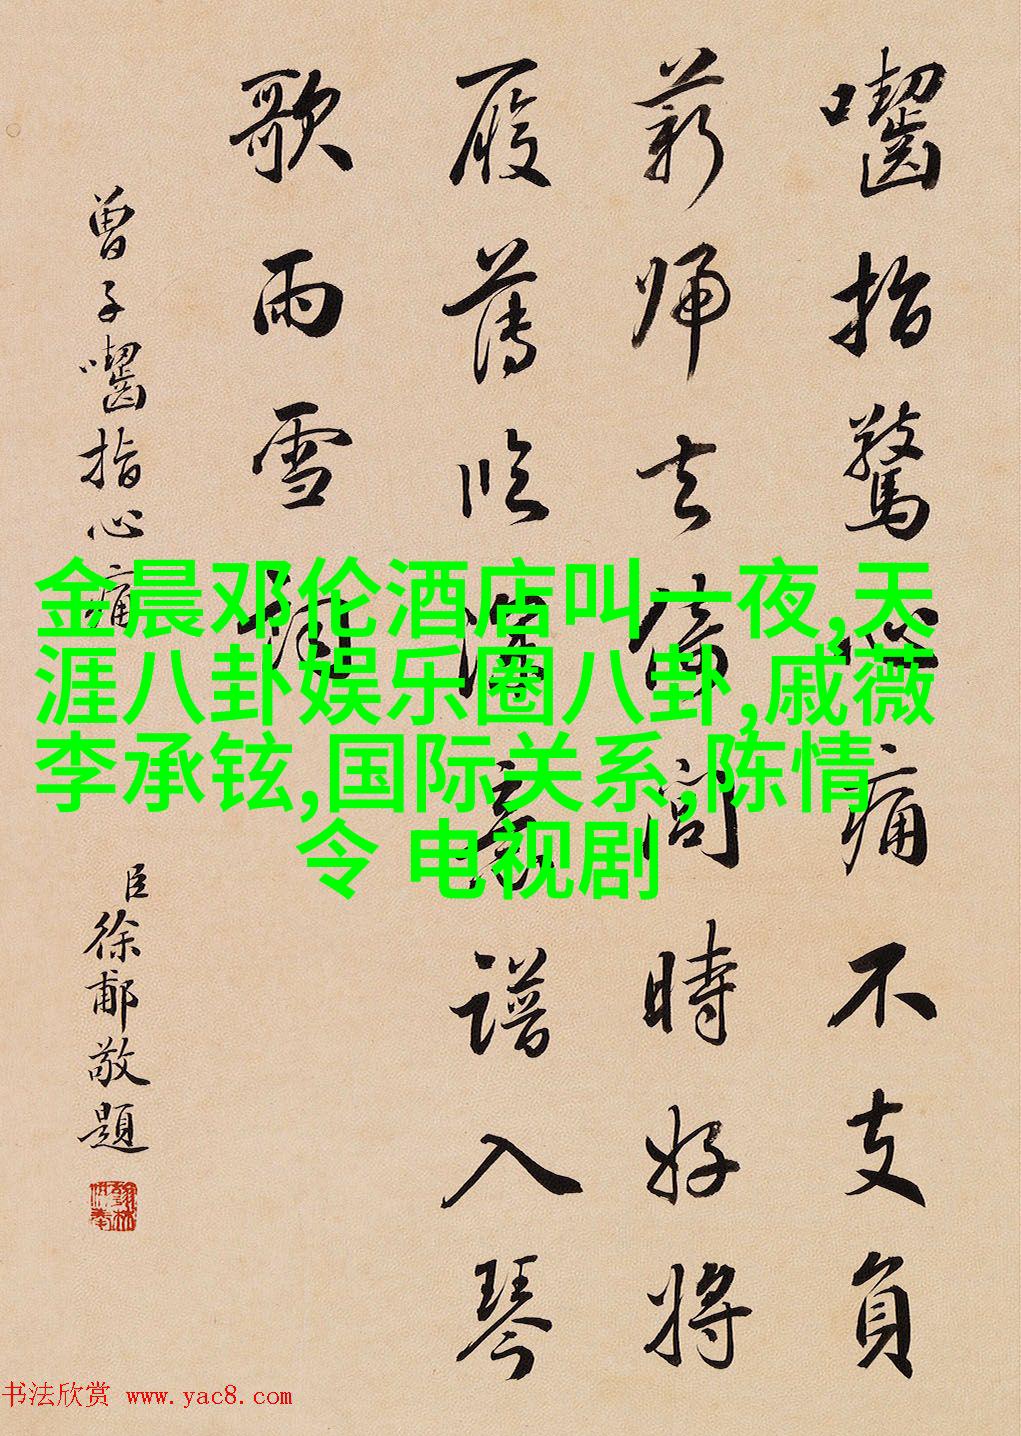 囓指驚心痛不支負
薪歸去問時好將
履薄臨深意譜入琴
歌雨雪詞
曾子囓指心痛
臣徐郙敬題
金晨邓伦酒店叫一夜,天
涯八卦娱乐圈八卦,戚薇
李承铉,国际关系,陈情
令 电视剧
书法欣赏 www.yac8.com